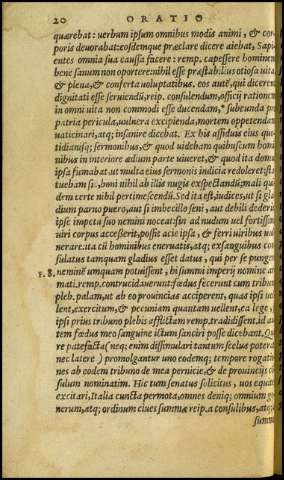 20 ORATIO
quærebat: uerbum ipsum omnibus modis animi, & cor
poris deuorabat: eosdemque præclare dicere aiebat, Sapi
entes omnia sua caussa facere: remp. capessere hominem
bene sanum non oportere: nihil esse præstabilius otiosa uita,
& plena, & conferta uoluptatibus. eos autē, qui dicerent
dignitati esse seruiendū, reip. consulendum, officij rationem
in omni uita non commodi esse ducendam, subeunda pro
patria pericula, uulnera excipienda, mortem oppetendam,
uaticinari, atq; insanire dicebat. Ex his assiduis eius quo
tidianisq; sermonibus, & quod uidebam quibuscum homi
nibus in interiore ædium parte uiueret, & quod ita domus
ipsa fumabat ut multa eius sermonis indicia redoleret: sta
tuebam si. boni nihil ab illis nugis exspectandū; mali qui
dem certe nihil pertimescendū. Sed ita est, iudices, ut si gla
dium paruo puero, aut si imbecillo seni, aut debili dederis,
ipse impetu suo nemini noceat: sin ad nudum uel fortissimi
uiri corpus accesserit, possit acie ipsa, & ferri uiribus uul
nerare: ita cū hominibus eneruatis, atq; exsanguibus con
sulatus tamquam gladius esset datus, qui per se pungere
F. 8. neminē umquam potuissent, hi summi imperij nomine ar
mati. remp. contrucidauerunt. fœdus fecerunt cum tribuno
pleb. palam, ut ab eo prouincias acciperent, quas ipsi uel
lent, exercitum, & pecuniam quantam uellent, ea lege, si
ipsi prius tribuno plebis afflictam remp. tradidissent. id au
tem fœdus meo sanguine ictum sanciri posse dicebant. Qua
re patefacta (neq; enim dissimulari tantum scelus poterat,
nec latere) promolgantur uno eodemq; tempore rogatio
nes ab eodem tribuno de mea pernicie, & de prouincijs con
sulum nominatim. Hic tum senatus solicitus, uos equites
excitati, Italia cuncta permota, omnes deniq; omnium ge
nerum, atq; ordinum ciues summæ reip. a consulibus, atq; a
summo